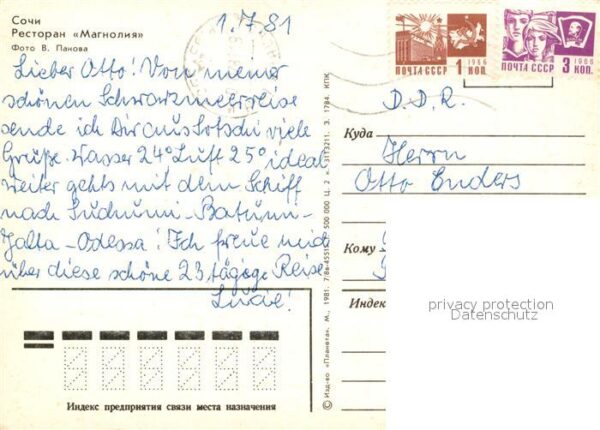 Сочи
Ресторан «Магнолия»
Фото В. Панова
1.7.81
Lieber Otto! Von meiner
schönen Schwarzmeerreise
sende ich Dir aus Sotschi viele
Grüße. Wasser 24° Luft 25° ideal
weiter gehts mit dem Schiff
nach Suchumi - Batumi -
Jalta - Odessa! Ich freue mich
über diese schöne 23 tägige Reise
Индекс предприятия связи места назначения
© Изд-во «Планета». М., 1981. 500 000 Ц. 2 к. З. 1784. КПК
1966
ПОЧТА СССР 1 КОП.
1966
ПОЧТА СССР 3 КОП.
D.D.R.
Куда
Herrn
Otto Enders
Кому
Индекс
privacy protection
Datenschutz